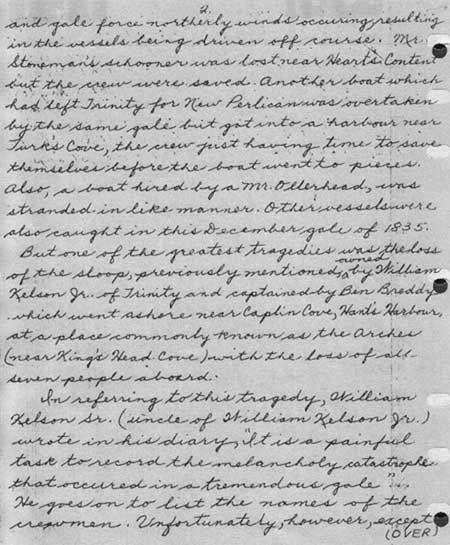 2.
and gale force northerly winds occuring, resulting
in the vessels being driven off course. Mr.
Stoneman's schooner was lost near Heart's Content
but the crew were saved. Another boat which
had left Trinity for New Perlican was overtaken
by the same gale but got into a harbour near
Turk's Cove, the crew just having time to save
themselves before the boat went to pieces.
Also, a boat hired by a Mr. Ollerhead, was
stranded in like manner. Other vessels were
also caught in this December gale of 1835.
But one of the greatest tragedies was the loss
of the sloop, previously mentioned, owned by William
Kelson Jr. of Trinity and captained by Ben Breddy
which went ashore near Caplin Cove, Hant's Harbour,
at a place commonly known as the Arches
(near King's Head Cove) with the loss of all
seven people aboard.
In referring to this tragedy, William
Kelson sr. (uncle of William Kelson Jr.)
wrote in his diary, "It is a painful
task to record the melancholy catastrophe
that occured in a tremendous gale"...
He goes on to list the names of the
crewmen. Unfortunately, however, except
(OVER)